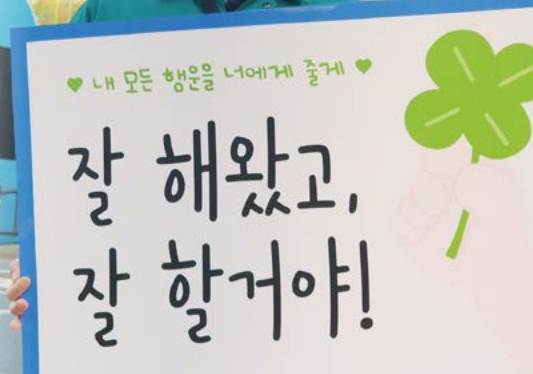 ♥ 내 모든 행운을 너에게 줄게 ♥
잘 해왔고,
잘 할거야!